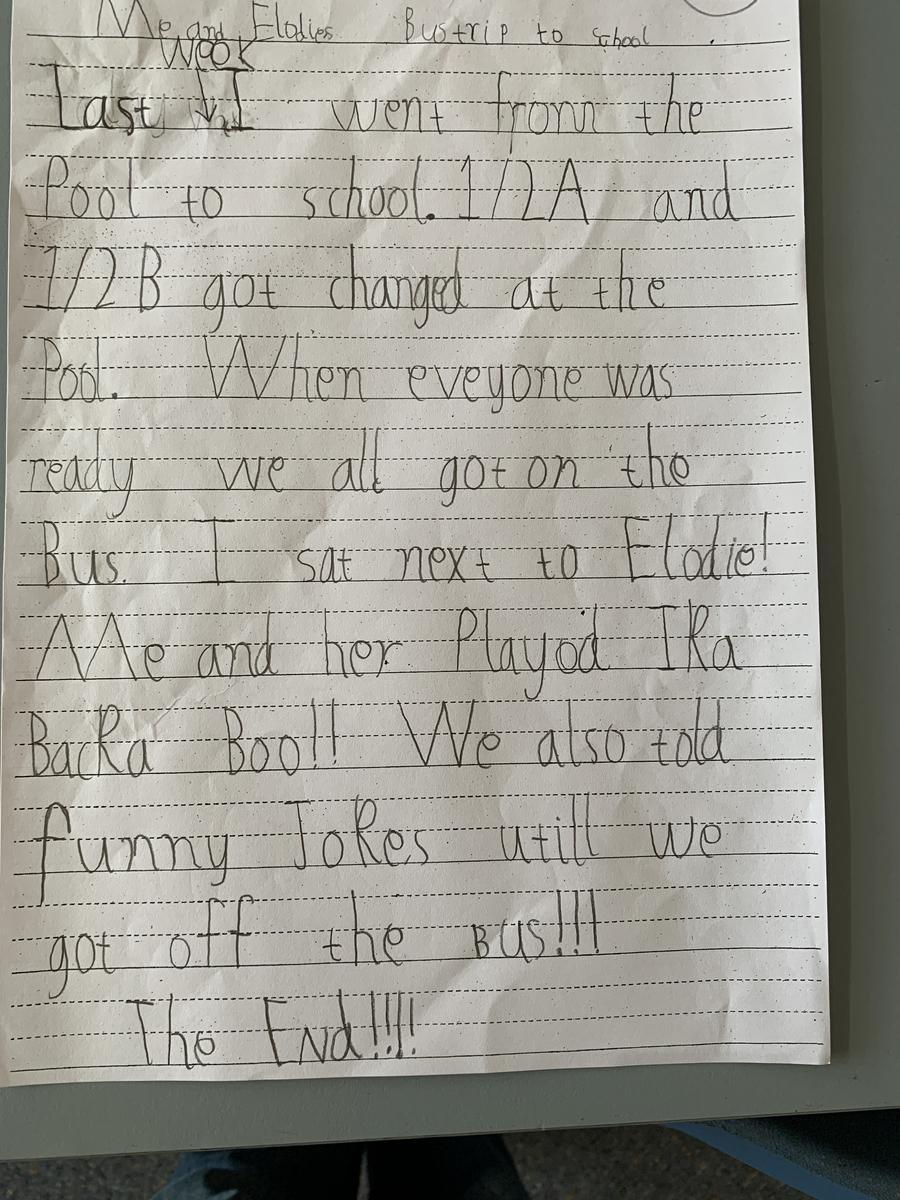 Me and Elodies Bustrip to school .
Week
Last I went from the
Pool to school. 1/2A and
1/2B got changed at the
Pool. When eveyone was
ready we all got on the
Bus. I sat next to Elodie!
Me and her Played Ika
Backa Boo!! We also told
funny Jokes utill we
got off the Bus!!!
The End!!!!